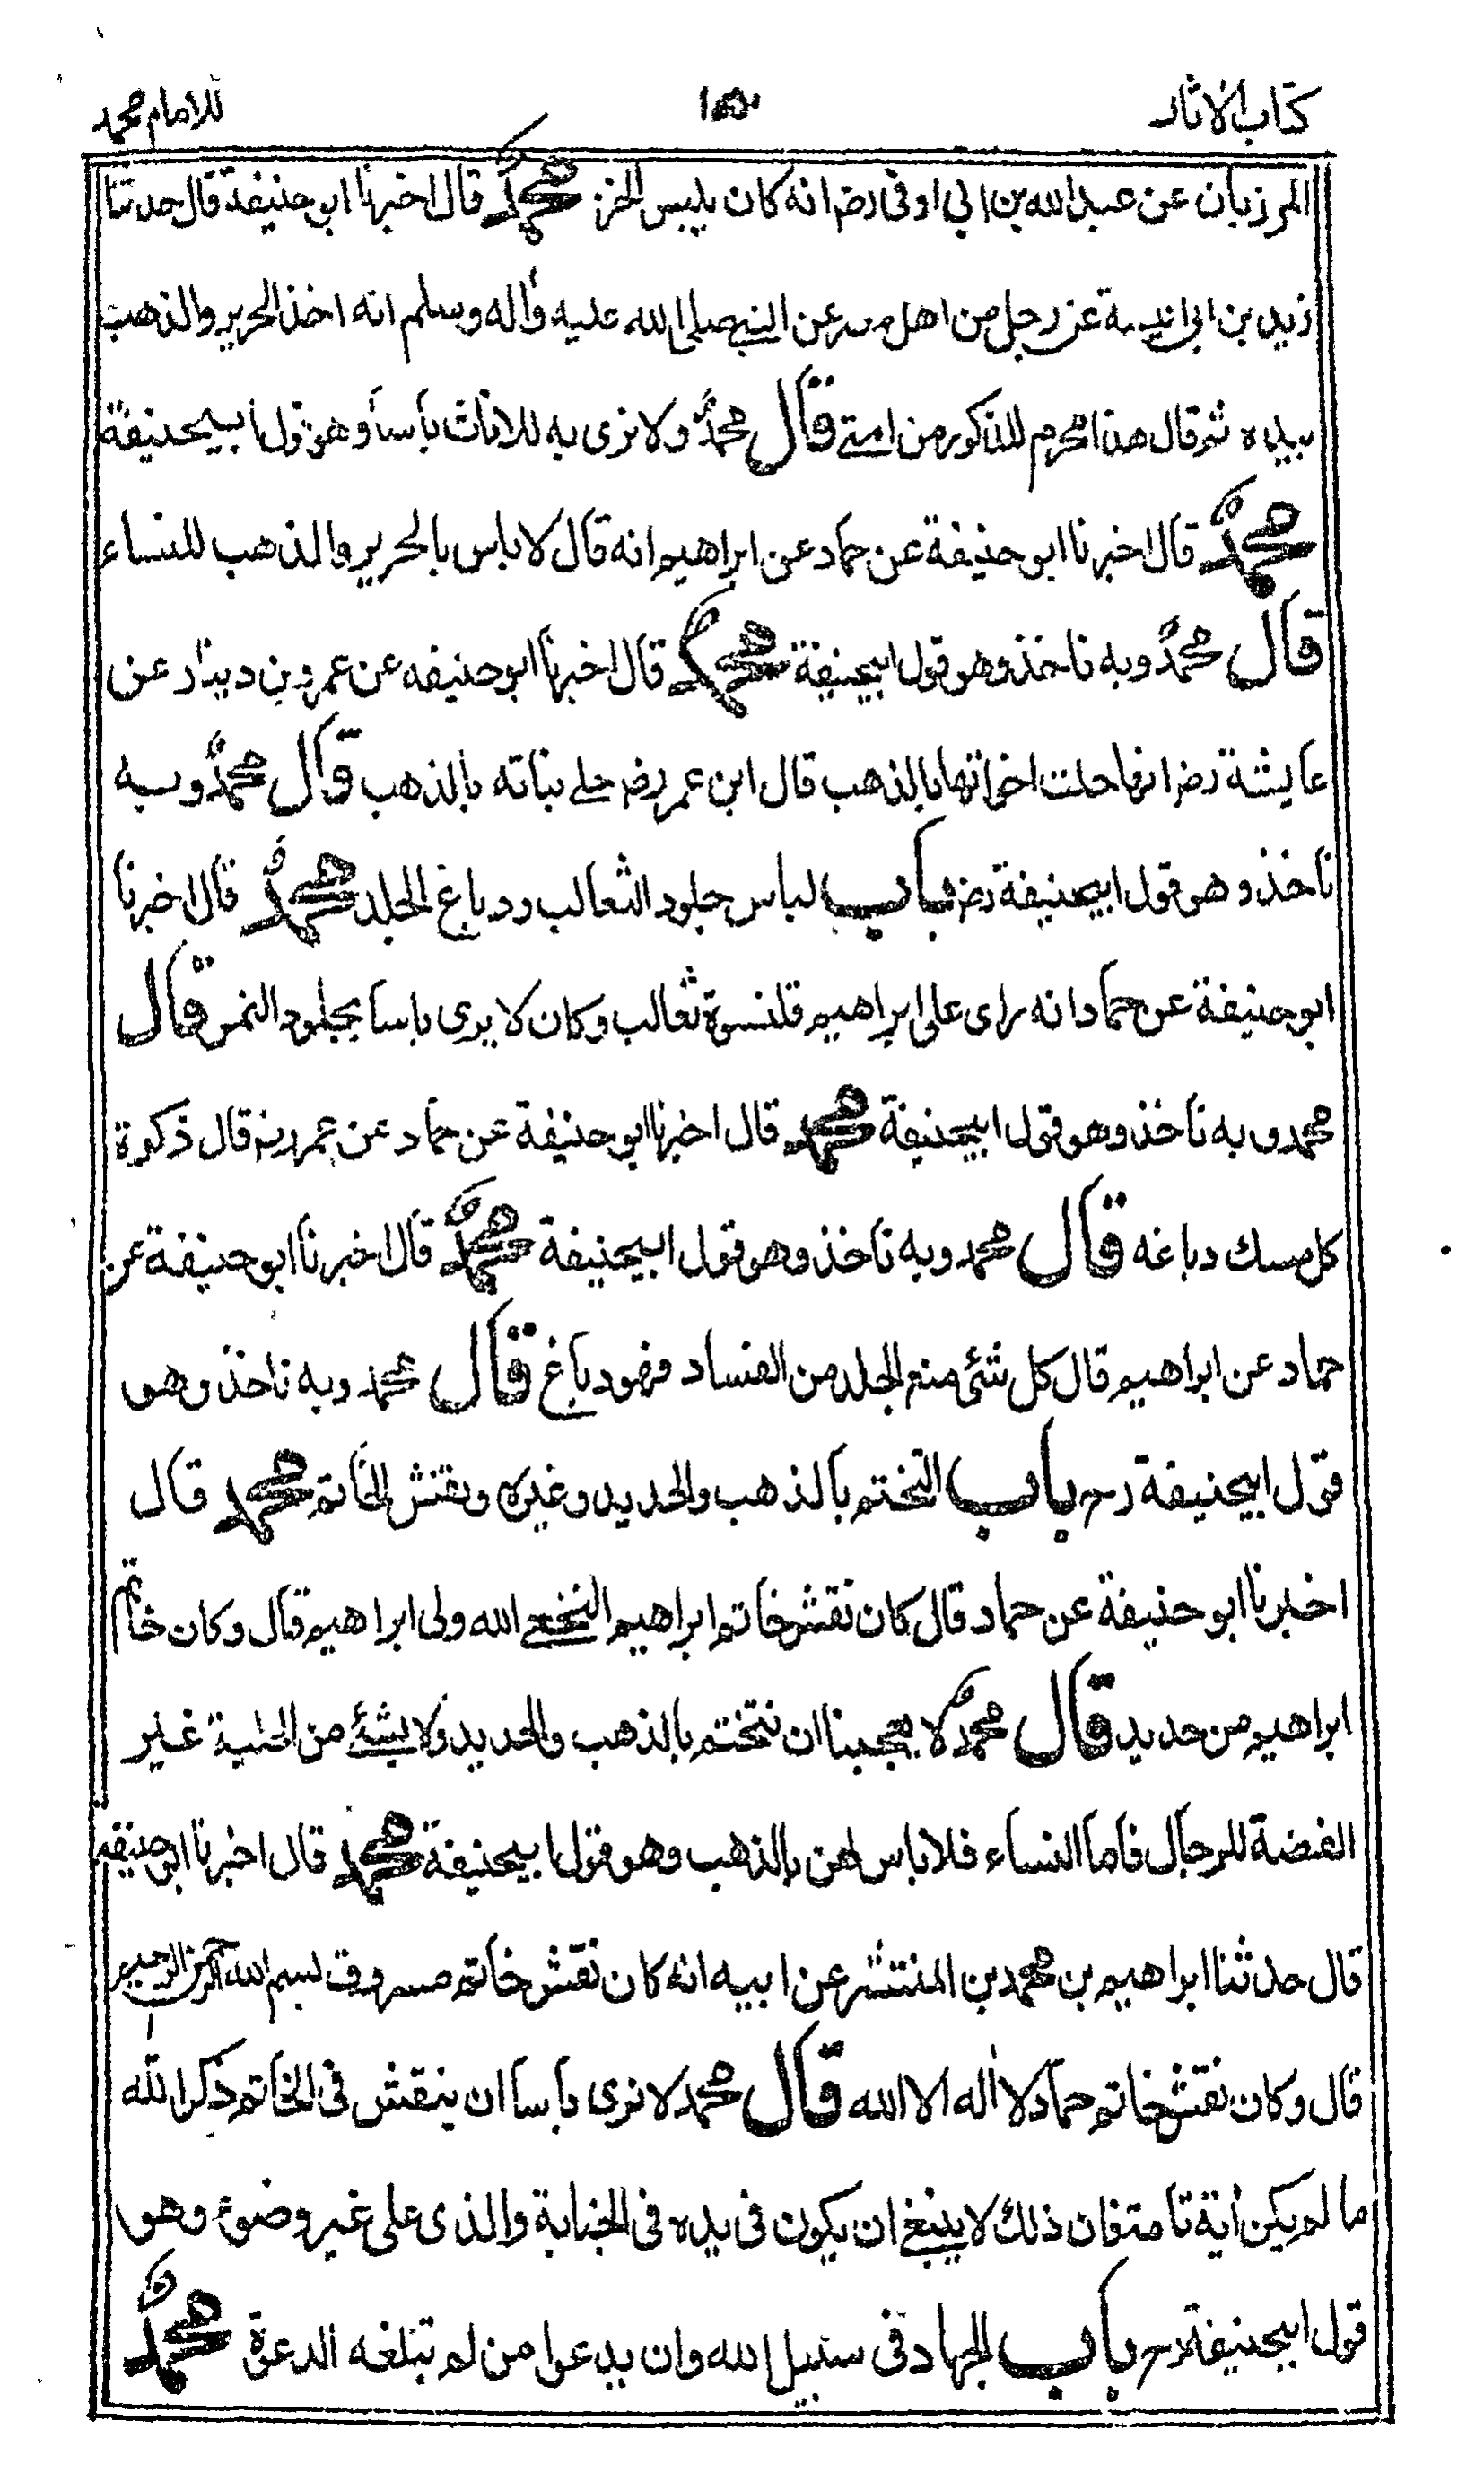 كتاب الاثار
للامام محمد
المرزبان عن عبد الله بن ابي اوفى رضـ انه كان يلبس الخز محمد قال اخبرنا ابو حنيفة قال حدثنا
زيد بن ابي انيسة عن رجل من اهل مصر عن النبي صلى الله عليه واله وسلم انه اخذ الحرير والذهب
بيده ثم قال هذا محرم للذكور من امتي قال محمد ولا نرى به للاناث بأسا وهو قول ابيحنيفة
محمد قال اخبرنا ابو حنيفة عن حماد عن ابراهيم انه قال لا باس بالحرير والذهب للنساء
قال محمد وبه ناخذ وهو قول ابيحنيفة محمد قال اخبرنا ابو حنيفه عن عمرو بن دينار عن
عايشة رضـ انها حلت اخواتها بالذهب قال ابن عمر رضـ حلى بناته بالذهب قال محمد وبه
ناخذ وهو قول ابيحنيفة رضـ باب لباس جلود الثعالب ودباغ الجلد محمد قال اخبرنا
ابو حنيفة عن حماد انه راى على ابراهيم قلنسوة ثعالب وكان لا يرى باسا بجلود النمر قال
محمد وبه ناخذ وهو قول ابيحنيفة محمد قال اخبرنا ابو حنيفة عن حماد عن عمر رضـ قال ذكوة
كل مسك دباغه قال محمد وبه ناخذ وهو قول ابيحنيفة محمد قال اخبرنا ابو حنيفة عن
حماد عن ابراهيم قال كل شئ منع الجلد من الفساد فهو دباغ قال محمد وبه ناخذ وهو
قول ابيحنيفة رحـ باب التختم بالذهب والحديد وغيره ونقش الخاتم محمد قال
اخبرنا ابو حنيفة عن حماد قال كان نقش خاتم ابراهيم النخعي الله ولى ابراهيم قال وكان خاتم
ابراهيم من حديد قال محمد لا يعجبنا ان نتختم بالذهب والحديد ولا بشئ من الحلية غير
الفضة للرجال فاما النساء فلا باس لهن بالذهب وهو قول ابيحنيفة محمد قال اخبرنا ابو حنيفة
قال حدثنا ابراهيم بن محمد بن المنتشر عن ابيه انه كان نقش خاتم مسروق بسم الله الرحمن الرحيم
قال وكان نقش خاتم حماد لا اله الا الله قال محمد لا نرى باسا ان ينقش فى الخاتم ذكر الله
ما لم يكن اية تامة فان ذلك لا ينبغي ان يكون فى يده فى الجنابة والذى على غير وضوء وهو
قول ابيحنيفة رحـ باب الجهاد فى سبيل الله وان يدعوا من لم تبلغه الدعوة محمد